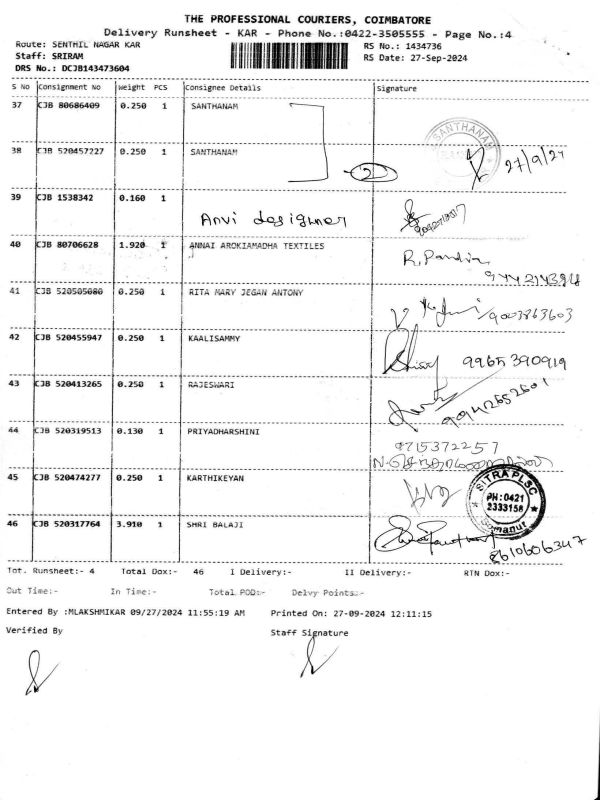 THE PROFESSIONAL COURIERS, COIMBATORE
Delivery Runsheet - KAR - Phone No.:0422-3505555 - Page No.:4
Route: SENTHIL NAGAR KAR RS No.: 1434736
Staff: SRIRAM RS Date: 27-Sep-2024
DRS No.: DCJB143473604
S No Consignment No Weight PCS Consignee Details Signature
37 CJB 80686409 0.250 1 SANTHANAM
SANTHANAM
38 CJB 520457227 0.250 1 SANTHANAM 27/9/24
2
39 CJB 1538342 0.160 1
Anvi designer
40 CJB 80706628 1.920 1 ANNAI AROKIAMADHA TEXTILES
R. Pandi
41 CJB 520505080 0.250 1 RITA MARY JEGAN ANTONY
9003863603
42 CJB 520455947 0.250 1 KAALISAMMY
9965390919
43 CJB 520413265 0.250 1 RAJESWARI
44 CJB 520319513 0.130 1 PRIYADHARSHINI
9715372257
45 CJB 520474277 0.250 1 KARTHIKEYAN
SITRA PLSC
PH:0421
2333158
Somanur
46 CJB 520317764 3.910 1 SHRI BALAJI
8610606347
Tot. Runsheet:- 4 Total Dox:- 46 I Delivery:- II Delivery:- RTN Dox:-
Out Time:- In Time:- Total POD:- Delvy Points:-
Entered By :MLAKSHMIKAR 09/27/2024 11:55:19 AM Printed On: 27-09-2024 12:11:15
Verified By Staff Signature